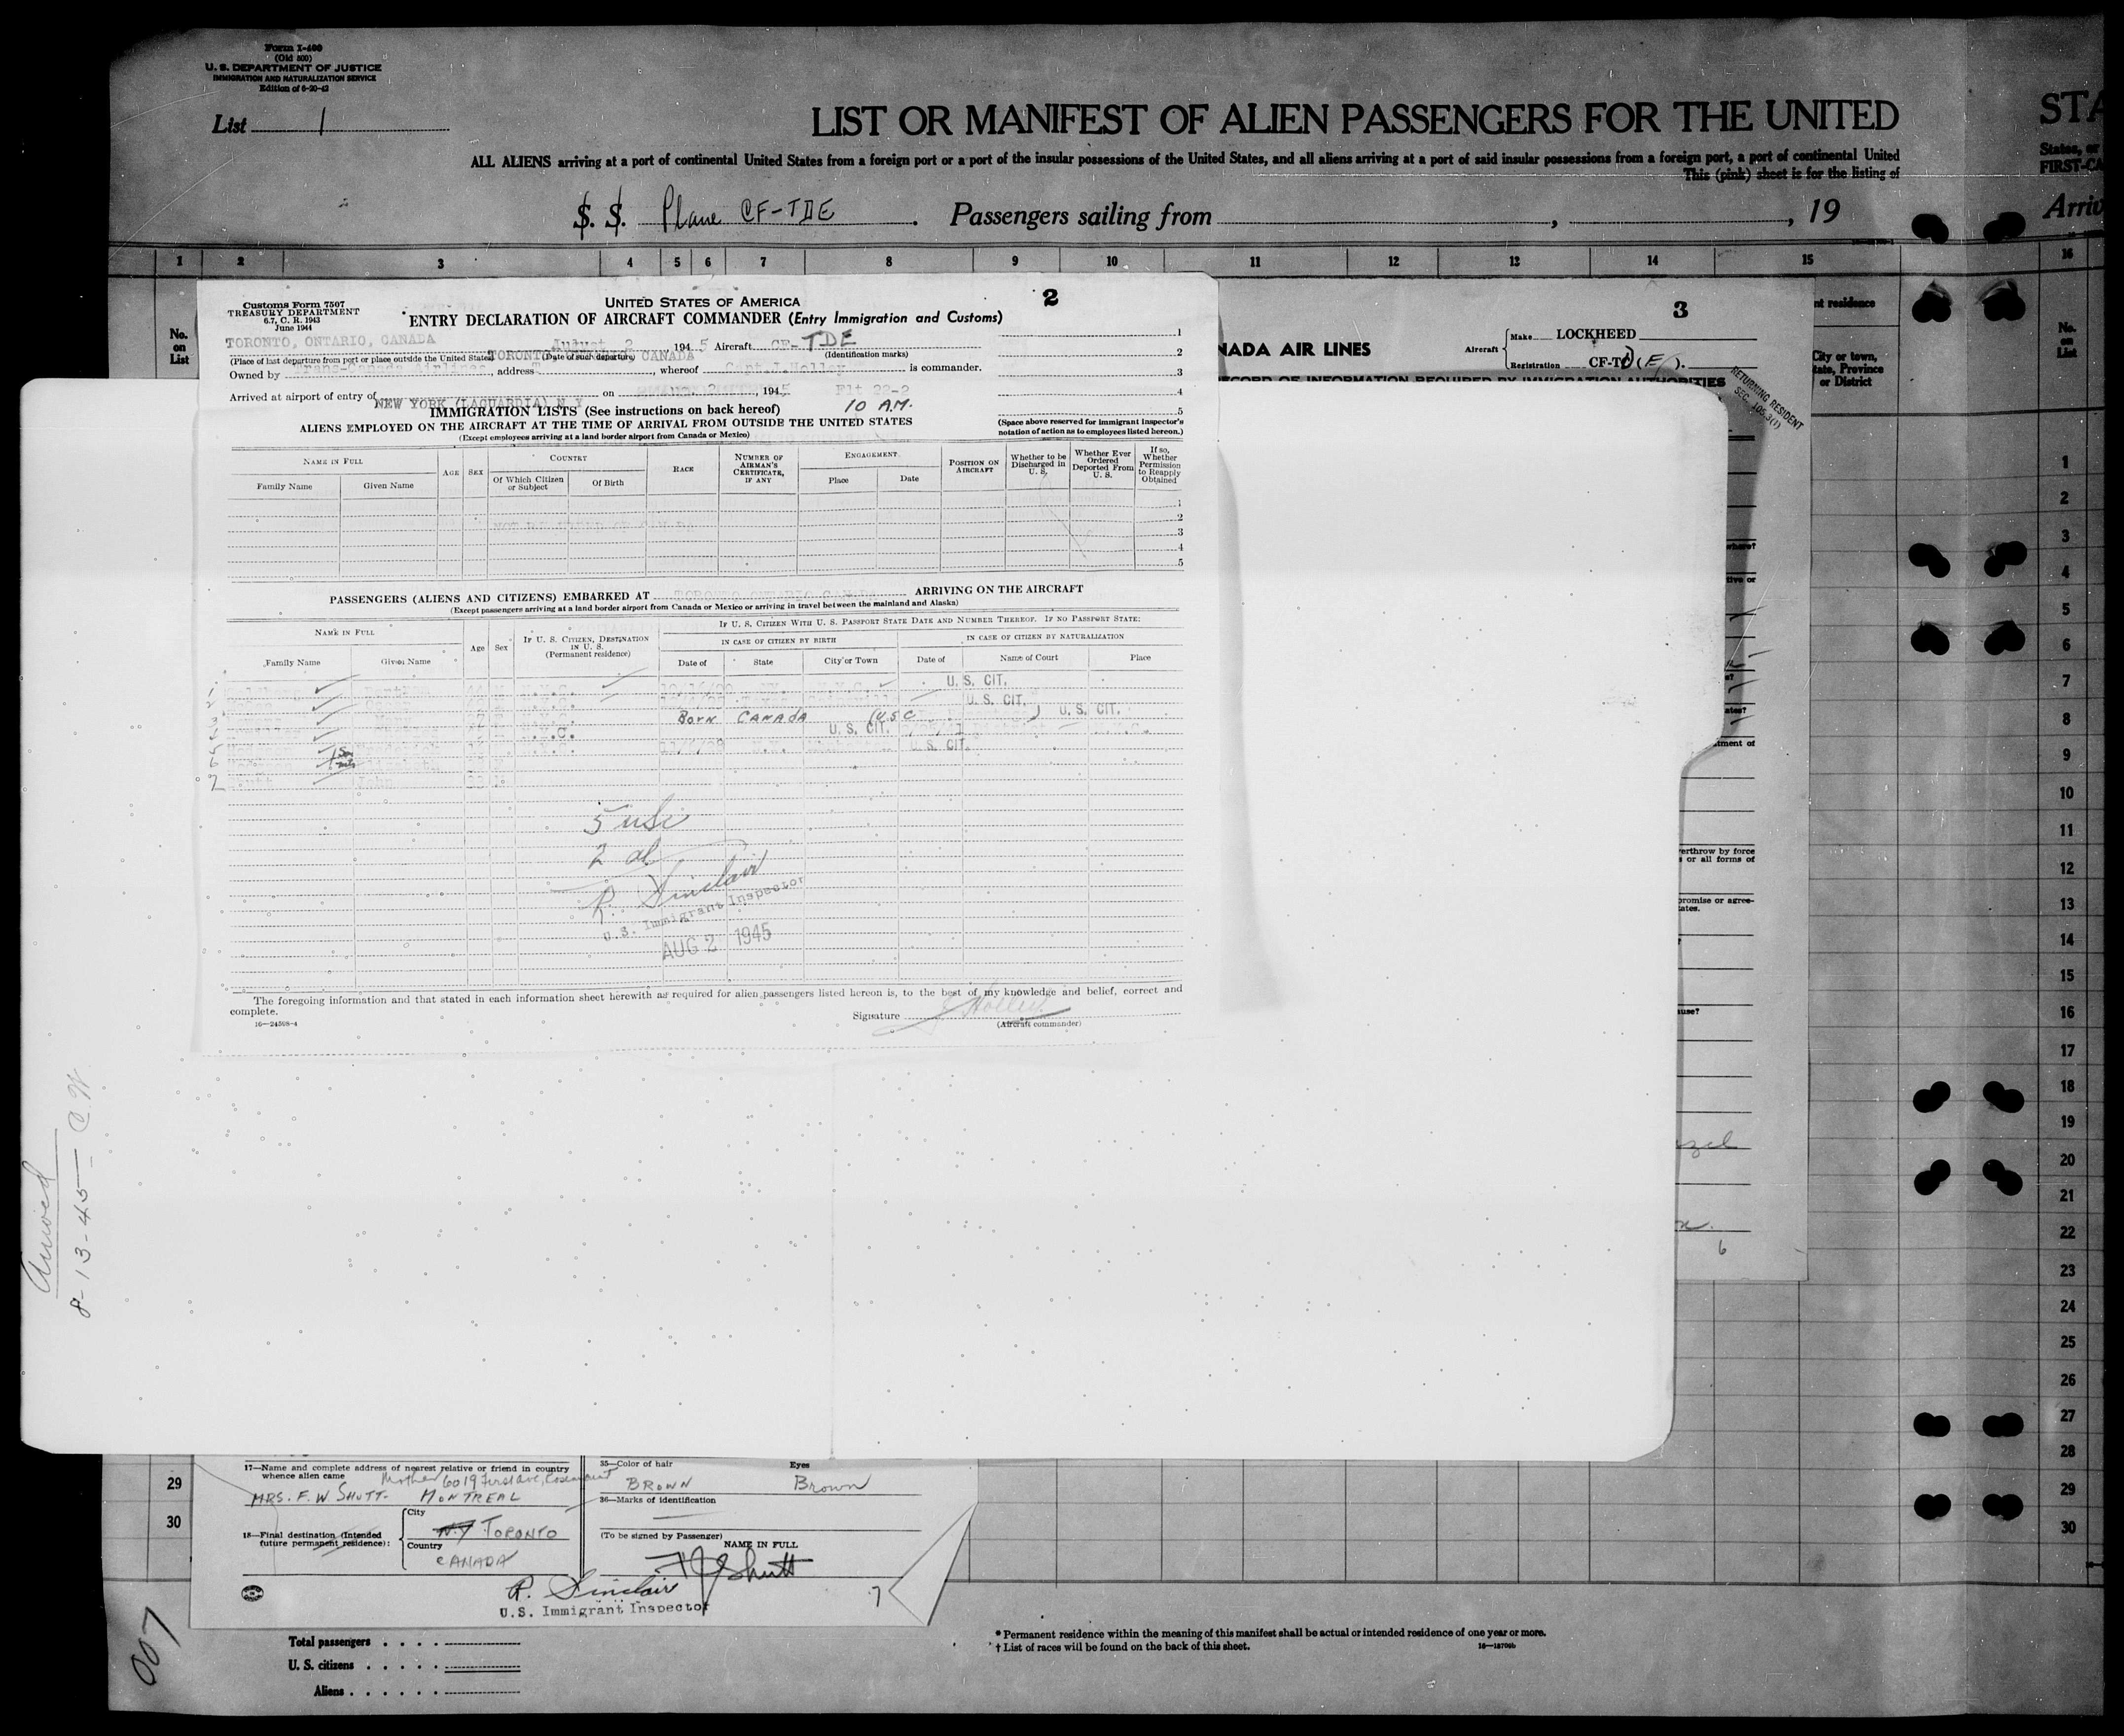 Form I-400
(Old 500)
U. S. DEPARTMENT OF JUSTICE
IMMIGRATION AND NATURALIZATION SERVICE
Edition of 6-20-42
List 1
LIST OR MANIFEST OF ALIEN PASSENGERS FOR THE UNITED
STA
ALL ALIENS arriving at a port of continental United States from a foreign port or a port of the insular possessions of the United States, and all aliens arriving at a port of said insular possessions from a foreign port, a port of continental United
States, or
This (pink) sheet is for the listing of
FIRST-CA
S. S. Plane CF-TDE . Passengers sailing from , , 19
Arriv
1 2 3 4 5 6 7 8 9 10 11 12 13 14 15 16
No. on List
Customs Form 7507
TREASURY DEPARTMENT
6.7, C. R. 1943
June 1944
UNITED STATES OF AMERICA
2
ENTRY DECLARATION OF AIRCRAFT COMMANDER (Entry Immigration and Customs)
TORONTO, ONTARIO, CANADA August 2 1945 Aircraft CF-TDE
(Place of last departure from port or place outside the United States) (Date of such departure) (Identification marks)
TORONTO CANADA
Owned by Trans-Canada Airlines, address , whereof Capt J Holley is commander.
Arrived at airport of entry of NEW YORK (LAGUARDIA) N.Y. on 2 , 1945 Flt 22-2
10 A.M.
1
2
3
4
5
IMMIGRATION LISTS (See instructions on back hereof)
ALIENS EMPLOYED ON THE AIRCRAFT AT THE TIME OF ARRIVAL FROM OUTSIDE THE UNITED STATES
(Except employees arriving at a land border airport from Canada or Mexico)
(Space above reserved for immigrant inspector's notation of action as to employees listed hereon.)
NAME IN FULL
Family Name
Given Name
AGE
SEX
COUNTRY
Of Which Citizen or Subject
Of Birth
RACE
NUMBER OF AIRMAN'S CERTIFICATE, IF ANY
ENGAGEMENT
Place
Date
POSITION ON AIRCRAFT
Whether to be Discharged in U. S.
Whether Ever Ordered Deported From U. S.
If so, Whether Permission to Reapply Obtained
1
2
3
4
5
PASSENGERS (ALIENS AND CITIZENS) EMBARKED AT TORONTO ONTARIO CANADA ARRIVING ON THE AIRCRAFT
(Except passengers arriving at a land border airport from Canada or Mexico or arriving in travel between the mainland and Alaska)
NAME IN FULL
Family Name
Given Name
Age
Sex
IF U. S. CITIZEN, DESTINATION IN U. S.
(Permanent residence)
IF U. S. CITIZEN WITH U. S. PASSPORT STATE DATE AND NUMBER THEREOF. IF NO PASSPORT STATE:
IN CASE OF CITIZEN BY BIRTH
Date of
State
City or Town
IN CASE OF CITIZEN BY NATURALIZATION
Date of
Name of Court
Place
U. S. CIT.
U. S. CIT.
BORN CANADA (USC ) U. S. CIT.
U. S. CIT.
U. S. CIT.
5 usc
2 al
R. Sinclair
U.S. Immigrant Inspector
AUG 2 1945
The foregoing information and that stated in each information sheet herewith as required for alien passengers listed hereon is, to the best of my knowledge and belief, correct and complete.
Signature J Holley
(Aircraft commander)
16—24308-4
3
NADA AIR LINES
Aircraft
Make LOCKHEED
Registration CF-TD (E).
RECORD OF INFORMATION REQUIRED BY IMMIGRATION AUTHORITIES
RETURNING RESIDENT
SEC. 106.3(1)
nt residence
City or town,
State, Province
or District
No. on List
where?
tive or
ates?
tment of
verthrow by force
s or all forms of
promise or agree-
tates.
ause?
6
1
2
3
4
5
6
7
8
9
10
11
12
13
14
15
16
17
18
19
20
21
22
23
24
25
26
27
28
29
30
8-13-45 C W
29
30
17—Name and complete address of nearest relative or friend in country whence alien came
Mother 6019 First Ave, Rosemount
MRS. F. W SHUTT- MONTREAL
18—Final destination (Intended future permanent residence):
City
N.Y TORONTO
Country
CANADA
35—Color of hair
BROWN
Eyes
Brown
36—Marks of identification
(To be signed by Passenger)
NAME IN FULL
F J Shutt
R. Sinclair
U.S. Immigrant Inspector
7
007
Total passengers
U. S. citizens
Aliens
* Permanent residence within the meaning of this manifest shall be actual or intended residence of one year or more.
† List of races will be found on the back of this sheet.